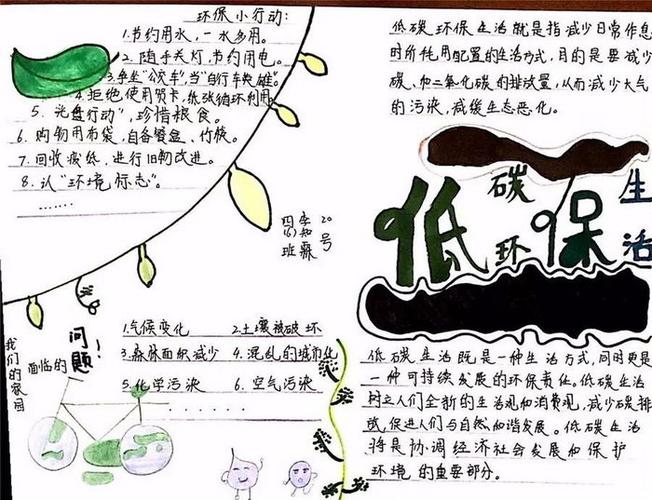 环保小行动:
1.节约用水，一水多用。
2.随手关灯，节约用电。
3.争坐“公交车”，当“自行车英雄”。
4.拒绝使用贺卡，纸张循环利用
5. 光盘行动”，珍惜粮食。
6. 购物用布袋，自备餐盒、竹筷。
7.回收废纸，进行旧物改进。
8.认“环境标志”。
......
四(6)班
20号
低碳环保生活就是指减少日常作息
时所耗用配置的生活方式，目的是要减少
碳、和二氧化碳的排放量，从而减少大气
的污染，减缓生态恶化。
低碳生活
环保
我们的家园
面临的
问题!
1.气候变化 2.土壤被破坏
3.森林面积减少 4.混乱的城市化
5.化学污染 6.空气污染
......
低碳生活既是一种生活方式，同时更是
一种可持续发展的环保责任。低碳生活
树立人们全新的生活观和消费观，减少碳排
放，促进人们与自然和谐发展。低碳生活
将是协调经济社会发展和保护
环境的重要部分。